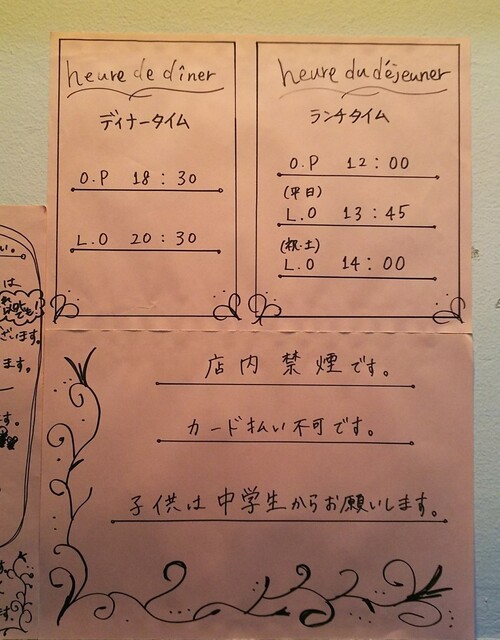 heure de dîner
ディナータイム
O.P 18:30
L.O 20:30
heure du déjeuner
ランチタイム
O.P 12:00
(平日)
L.O 13:45
(祝・土)
L.O 14:00
店内禁煙です。
カード払い不可です。
子供は中学生からお願いします。
い。
は
ざいます。
ます。
す。
ます。